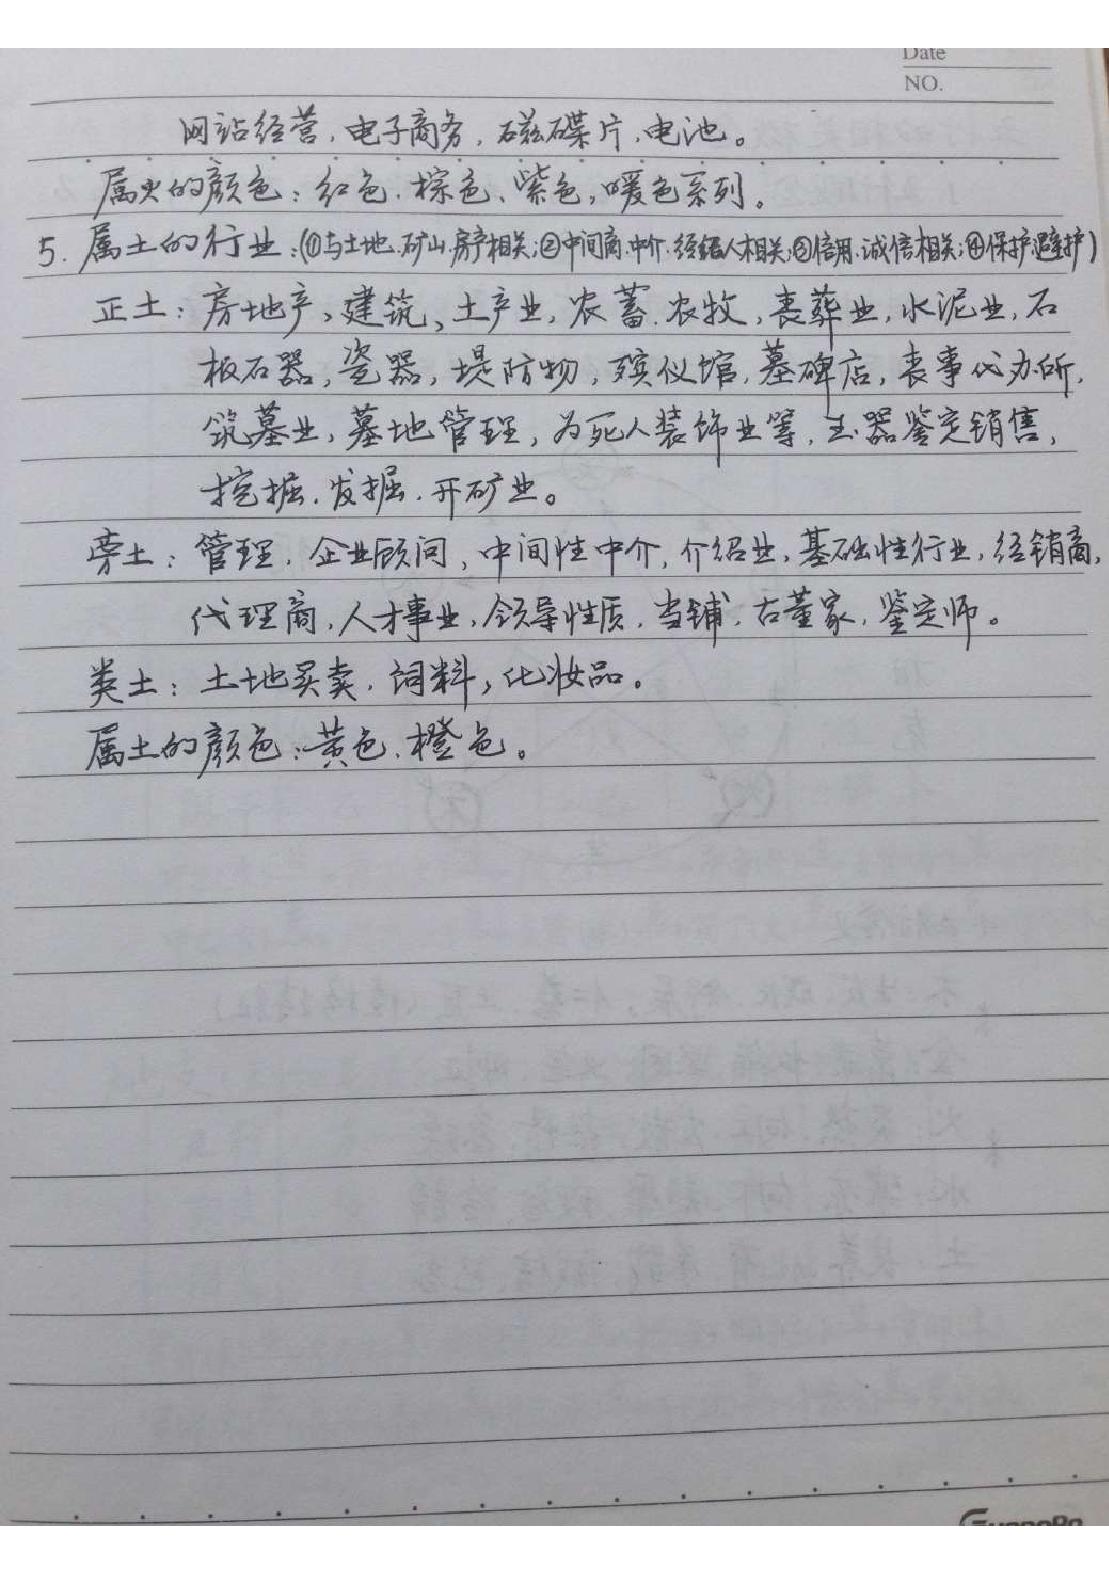 Date
NO.
网站经营、电子商务、磁碟片、电池。
属火的颜色：红色、棕色、紫色，暖色系列。
5. 属土的行业：(①与土地、矿山、房产相关;②中间商、中介、经纪人相关;③信用、诚信相关;④保护、避护)
正土：房地产、建筑、土产业，农蓄、农牧，丧葬业，水泥业，石
板石器，瓷器，堤防物，殡仪馆，墓碑店，丧事代办所，
筑墓业，墓地管理，为死人装饰业等，玉器鉴定销售，
挖掘、发掘、开矿业。
旁土：管理、企业顾问，中间性中介，介绍业，基础性行业，经销商，
代理商，人才事业，领导性质，当铺、古董家，鉴定师。
类土：土地买卖、饲料，化妆品。
属土的颜色：黄色、橙色。